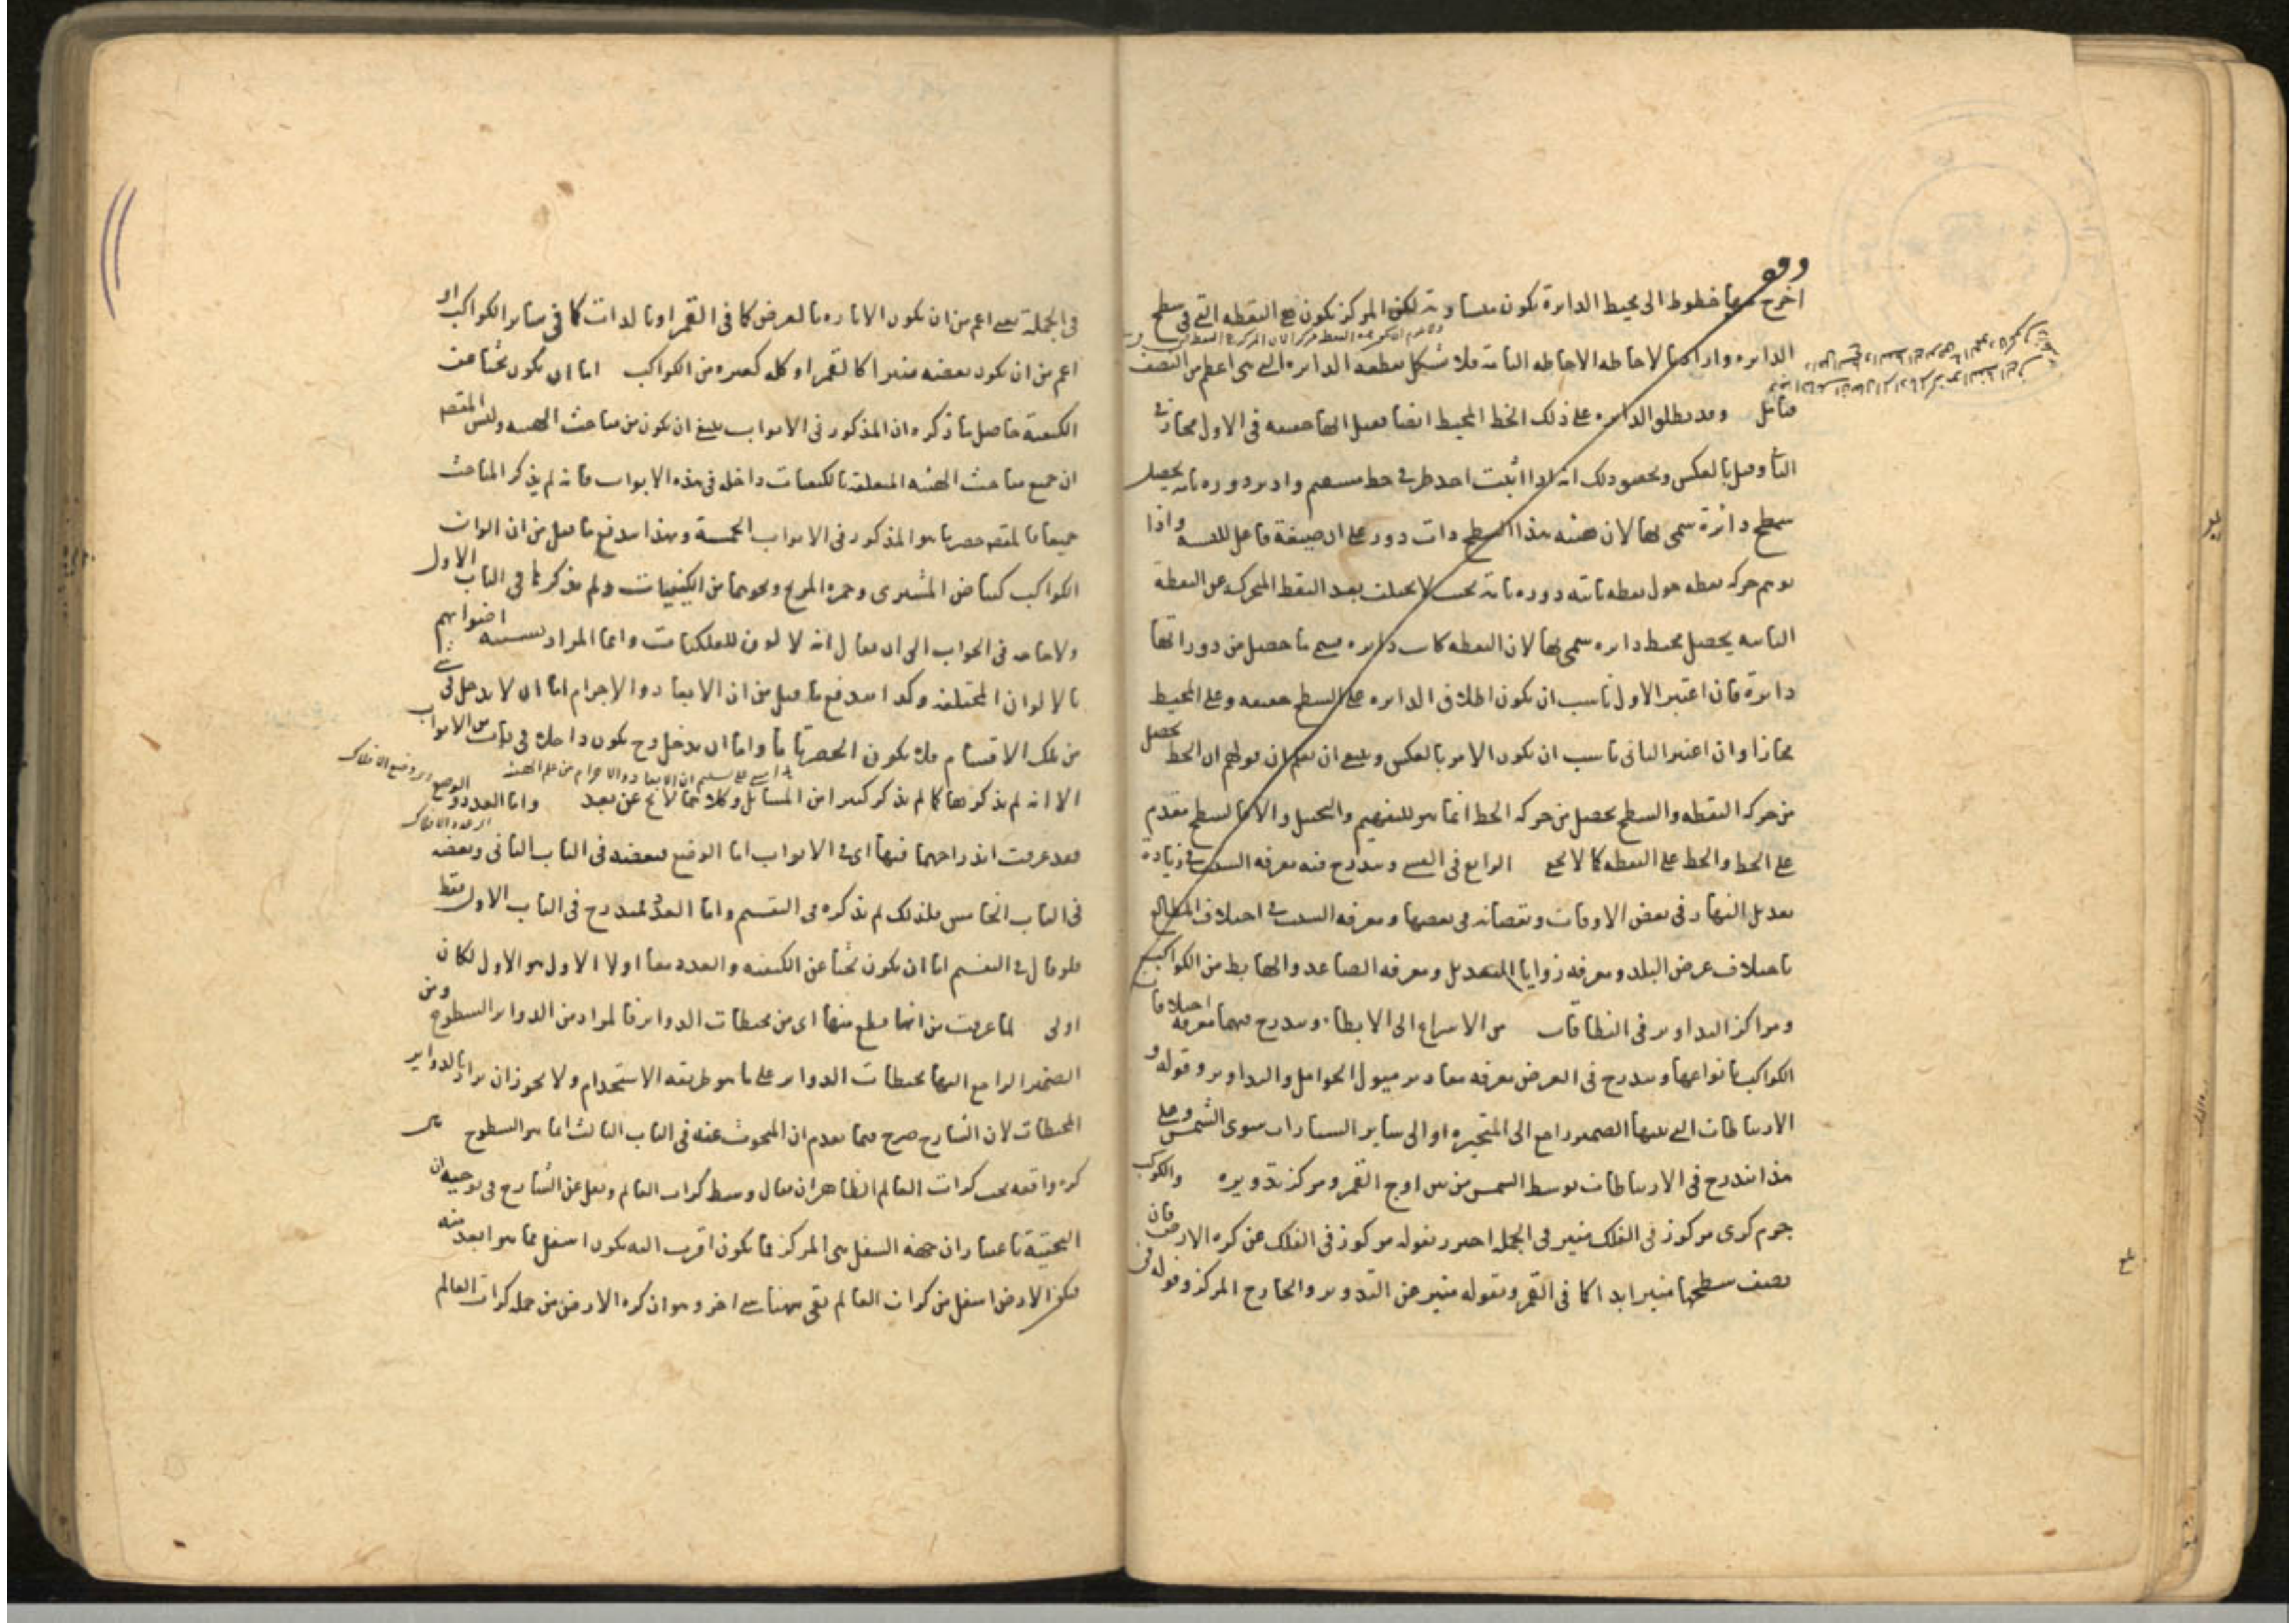 اخرج منها خطوط الى محيط الدايرة يكون متساوية لكن المركز يكون هي النقطه التى فى سطح
الدايره واراد بالاحاطه الاحاطه التامة فلا يشكل بقطعه الدايره التى هى اعظم من النصف
فتامل وقد يطلق الدايره على ذلك الخط المحيط ايضا فقيل انها حقيقه فى الاول مجاز فى
الثانى وقيل بالعكس وتحقيق ذلك انه اذا اثبت احد طرفى خط مستقيم وادير دوره تامه يحصل
سطح دائرة سمى بها لان هيئة هذا السطح ذات دور على ان صيغة فاعل للنسبه واذا
توهم حركه نقطه حول نقطه ثابته دوره تامه بحيث لا يختلف بعد النقطه المتحركه عن النقطة
الثابته يحصل محيط دايره سمى بها لان النقطه كانت دايره فسمى ما حصل من دورانها
دايرة فان اعتبر الاول ناسب ان يكون اطلاق الدايره على السطح حقيقه وعلى المحيط
مجازا وان اعتبر الثانى ناسب ان يكون الامر بالعكس وينبغى ان يعلم ان قولهم ان الخط يحصل
من حركه النقطه والسطح يحصل من حركه الخط انما هو للتفهيم والتخييل والا فالسطح مقدم
على الخط والخط على النقطه كما لا يخفى الرابع فى ويندرج فيه معرفه السبب فى زيادة
تعديل النهار فى بعض الاوقات ونقصانه فى بعضها ومعرفه السبب فى اختلاف المطالع
باختلاف عرض البلد ومعرفه زوايا التعديل ومعرفه الصاعد والهابط من الكواكب
ومراكز التداوير فى النطاقات من الاسراع الى الابطاء ويندرج فيهما معرفة اختلافات
الكواكب بانواعها ويندرج فى العرض معرفه مقادير ميول الحوامل والتداوير وقوله و
الارتباطات التى بينها الضمير راجع الى المتحيره او الى ساير السيارات سوى الشمس وعلى
هذا يندرج فى الارتباطات توسط الشمس من بين اوج القمر ومركز تدويره والكوكب
جرم كرى مركوز فى الفلك منير فى الجمله احترز بقوله مركوز فى الفلك عن كره الارض فان
نصف سطحها منير ابدا كما فى القمر وبقوله منير عن التدوير والخارج المركز وقوله فى
فى الجملة يعنى اعم من ان يكون الاناره بالعرض كما فى القمر او بالذات كما فى ساير الكواكب او
اعم من ان يكون بعضه منيرا كالقمر او كله كغيره من الكواكب اما ان يكون بحثا عن
الكيفية حاصل ما ذكره ان المذكور فى الابواب ينبغى ان يكون من مباحث الهيئه وليس المقصود
ان جميع مباحث الهيئه المتعلقه بالكيفيات داخل فى هذه الابواب فانه لم يذكر المباحث
جميعا فالمقصود حصر ما هو المذكور فى الابواب الخمسة وبهذا يندفع ما قيل من ان الوان
الكواكب كبياض المشترى وحمره المريخ ونحوهما من الكيفيات ولم يذكرها فى الباب الاول
ولا حاجه فى الجواب الى ان يقال انه لا لون للفلكيات وانما المراد تشبيه اضوائهم
بالالوان المختلفه وكذا يندفع ما قيل من ان الابعاد والاجرام اما ان لا يدخل فى شىء
من تلك الاقسام فلا يكون الحصر تاما واما ان يدخل وح يكون داخلا فى باب من الابواب
الا انه لم يذكرها كما لم يذكر كثيرا من المسائل وكلاهما لا يخ عن بعد واما العدد والوضع
فقد عرفت اندراجهما فيها اى فى الابواب اما الوضع فبعضه فى الباب الثانى وبعضه
فى الباب الخامس فلذلك لم يذكره فى التقسيم واما العدد فمندرج فى الباب الاول فقط
فلو قال فى التقسيم اما ان يكون بحثا عن الكيفيه والعدد معا اولا الاول هو الاول لكان
اولى لما عرفت من انها قطع منها اى من محيطات الدواير فالمراد من الدواير السطوح ومن
الضمير الراجع اليها محيطات الدواير على ما هو طريقه الاستخدام ولا يجوز ان يراد بالدواير
المحيطات لان الشارح صرح فيما تقدم ان المبحوث عنه فى الباب الثالث انما هو السطوح
كره واقعه تحت كرات العالم الظاهر ان يقال وسط كرات العالم ونقل عن الشارح فى توجيه ان
التحتية باعتبار ان جهة السفل هى المركز فما يكون اقرب اليه يكون اسفل مما هو ابعد منه
فكره الارض اسفل من كرات العالم بقى ههنا شىء اخر وهو ان كره الارض من جمله كرات العالم